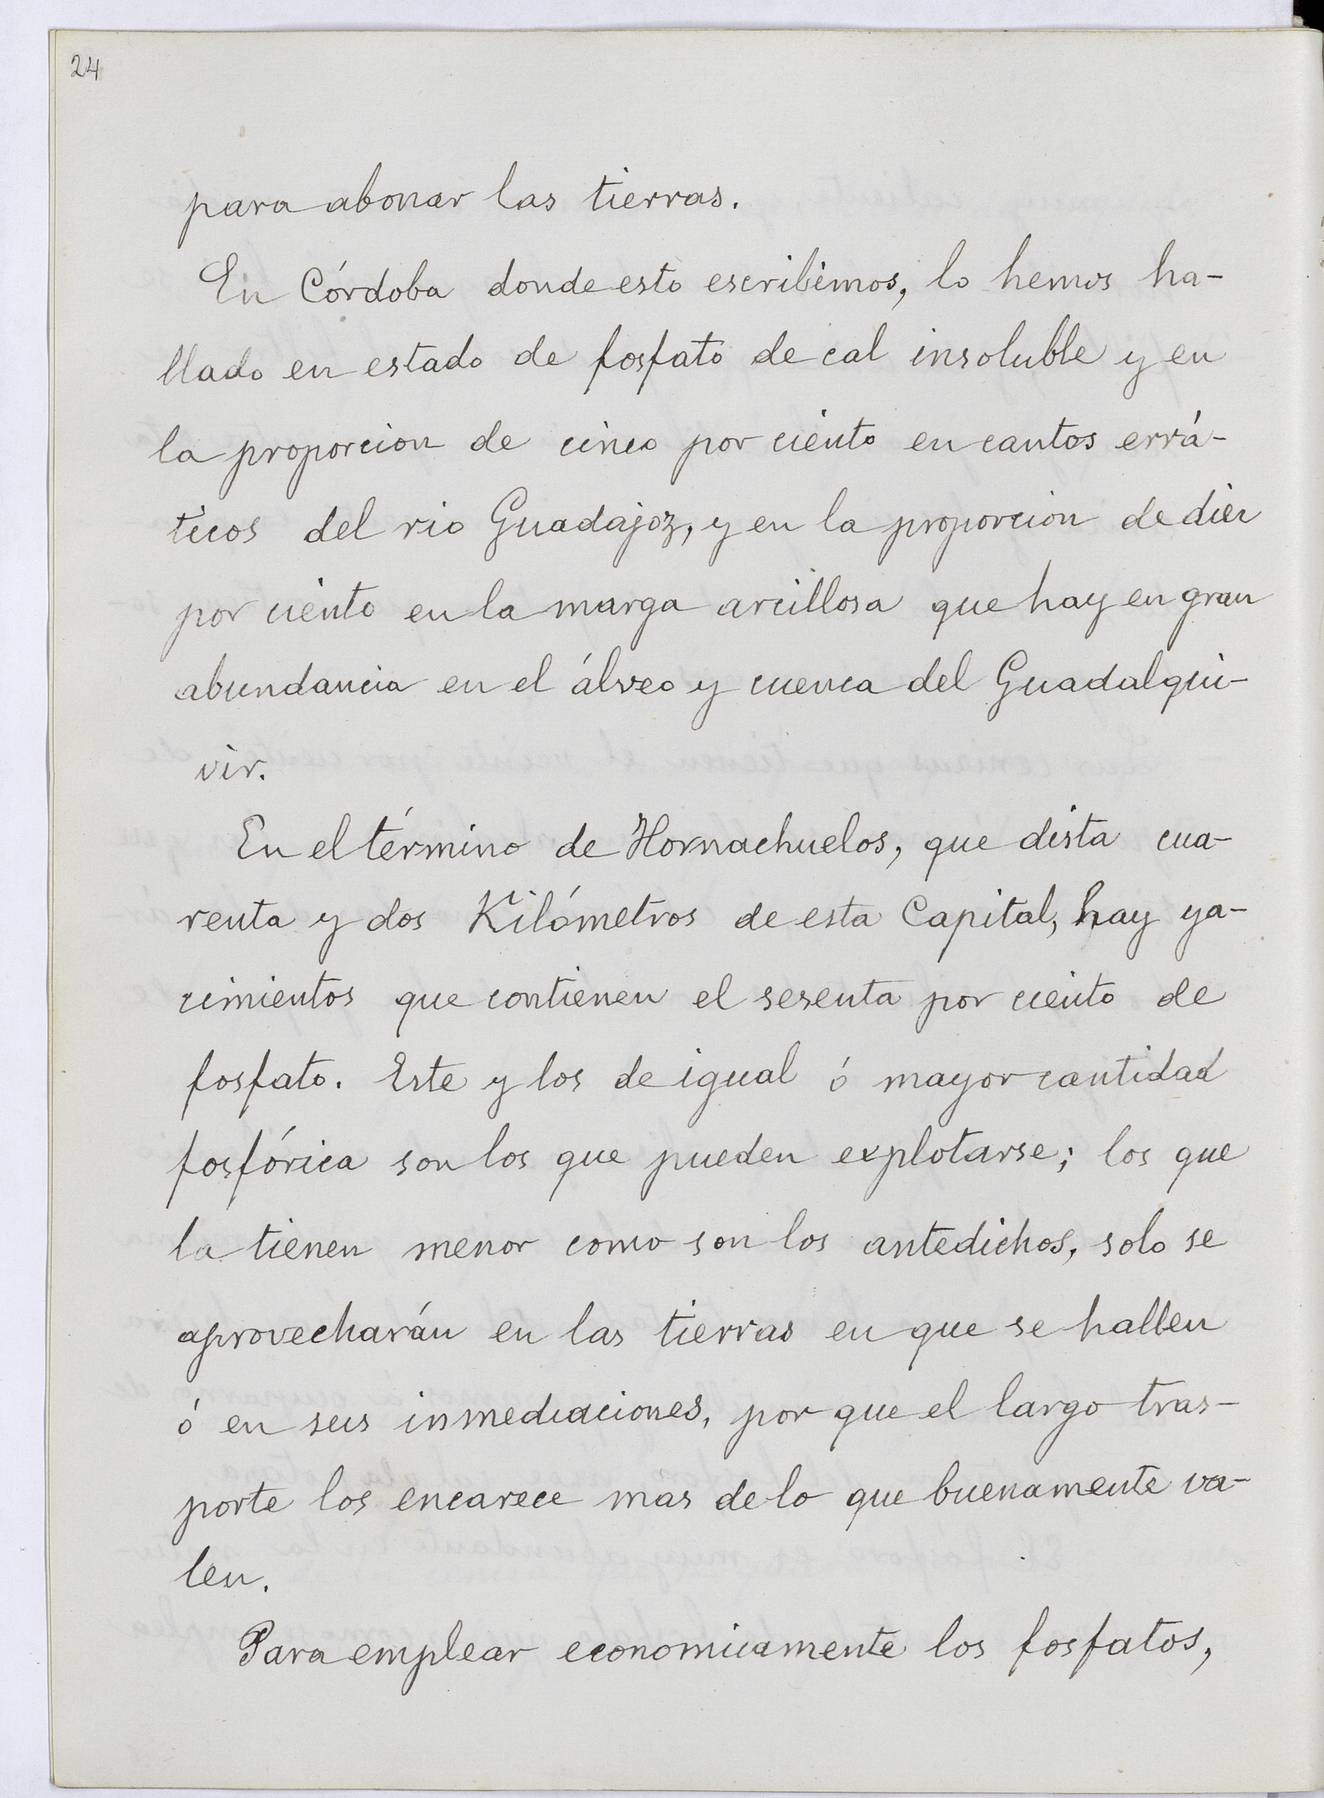 24
para abonar las tierras.
En Córdoba donde esto escribimos, lo hemos ha-
llado en estado de fosfato de cal insoluble y en
la proporcion de cinco por ciento en cantos errá-
ticos del rio Guadajoz, y en la proporcion de diez
por ciento en la marga arcillosa que hay en gran
abundancia en el álveo y cuenca del Guadalqui-
vir.
En el término de Hornachuelos, que dista cua-
renta y dos Kilómetros de esta Capital, hay ya-
cimientos que contienen el sesenta por ciento de
fosfato. Este y los de igual ó mayor cantidad
fosfórica son los que pueden explotarse; los que
la tienen menor como son los antedichos, solo se
aprovecharán en las tierras en que se hallen
ó en sus inmediaciones, por que el largo tras-
porte los encarece mas de lo que buenamente va-
len.
Para emplear economicamente los fosfatos,